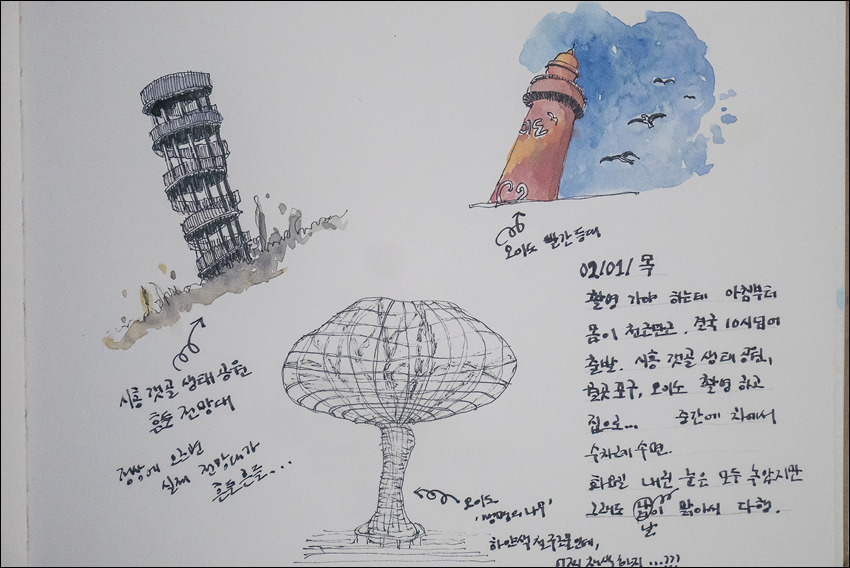 오이도 빨간등대
02/01/ 목
촬영 가야 하는데 아침부터
몸이 천근만근. 결국 10시넘어
출발. 시흥 갯골 생태공원,
월곶포구, 오이도 촬영 하고
집으로... 중간에 차에서
수차례 수면.
화요일 내린 눈은 모두 녹았지만
그래도 날이 맑아서 다행.
날
시흥 갯골 생태 공원
흔들 전망대
정상에 오르면
실제 전망대가
흔들흔들...
오이도
'생명의 나무'
하얀색 철구조물인데,